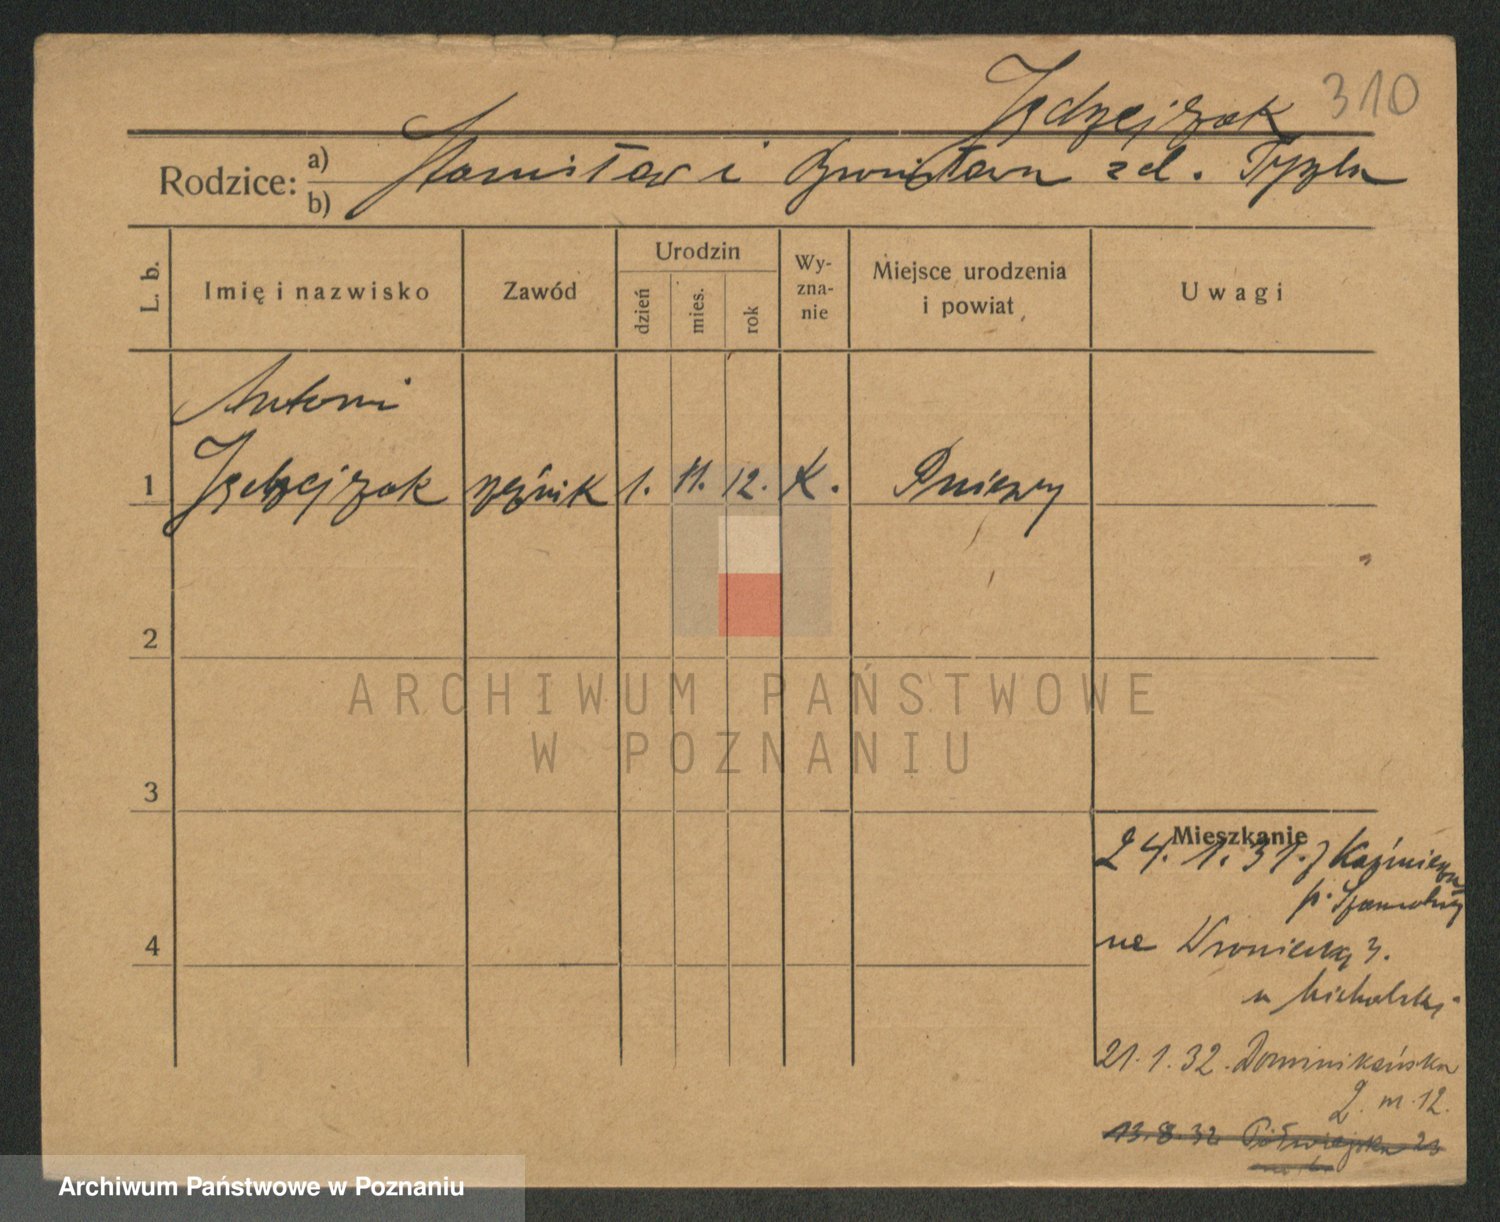 Jędrzejczak 310
Rodzice: a) Stanisław i Bronisława zd.
b)
L. b. Imię i nazwisko Zawód Urodzin Wy-zna-nie Miejsce urodzenia i powiat Uwagi
dzień mies. rok
Antoni
1 Jędrzejczak rzeźnik 1. 11. 12. K. Pniewy
2
ARCHIWUM PAŃSTWOWE
W POZNANIU
3
Mieszkanie
24. 1. 31. z Kaźmierza
p. Szamotuły
4 na Wroniecką 3.
u Michalski
21. 1. 32. Dominikańska
2. m. 12.
13. 8. 32 Półwiejska 23
Archiwum Państwowe w Poznaniu